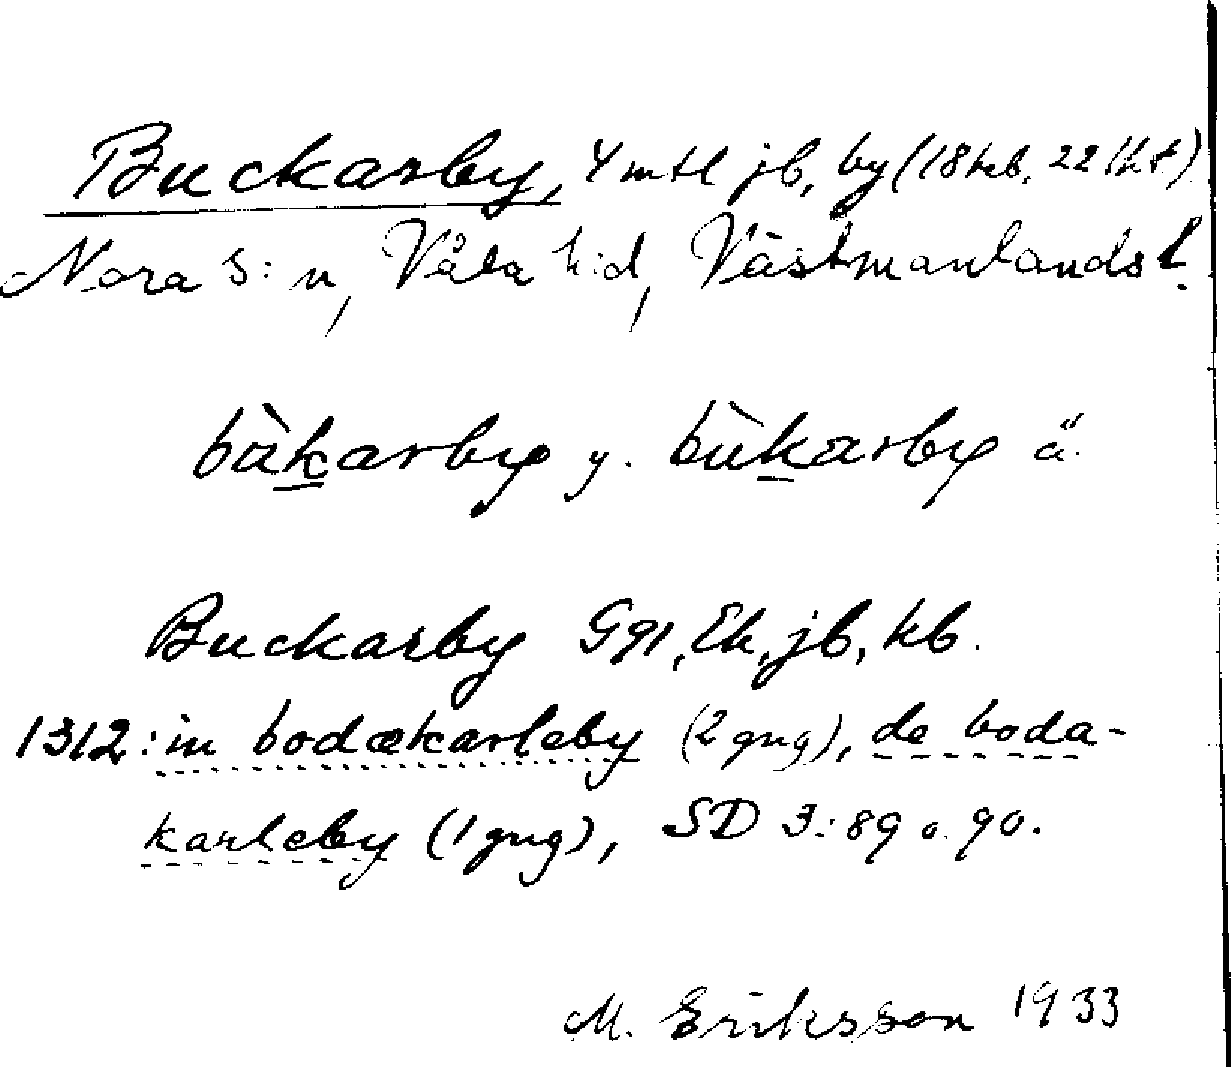 Buckarby, 4 mtl jb, by (18 hb, 22 lht)
Nora s:n, Våla h:d, Västmanlands l.
bùkarby y. bùkarby ä.
Buckarby G91, Ek, jb, kb.
1312: in bodækarleby (2 gng), de boda-
karleby (1 gng), SD 3: 89 o. 90.
M. Eriksson 1933